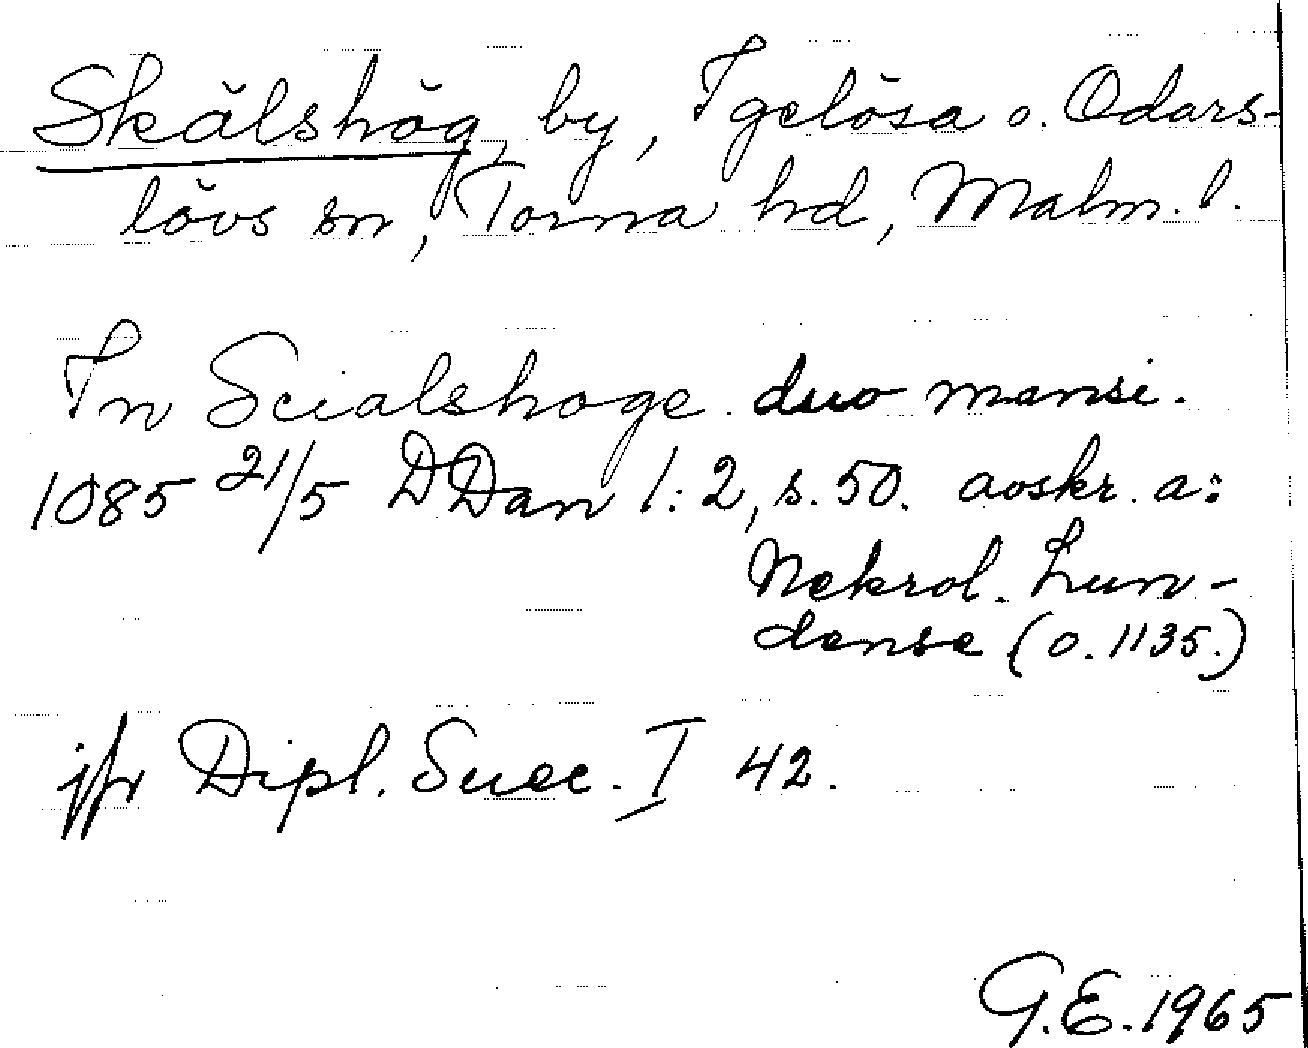 Skälshög, by, Igelösa o. Odars-
lövs sn, Torna hd, Malm. l.
In Scialshoge duo mansi.
1085 21/5 DDan 1:2, s. 50. avskr. a:
Nekrol. Lun-
dense (o. 1135.)
jfr Dipl. Suec. I 42.
G.E. 1965